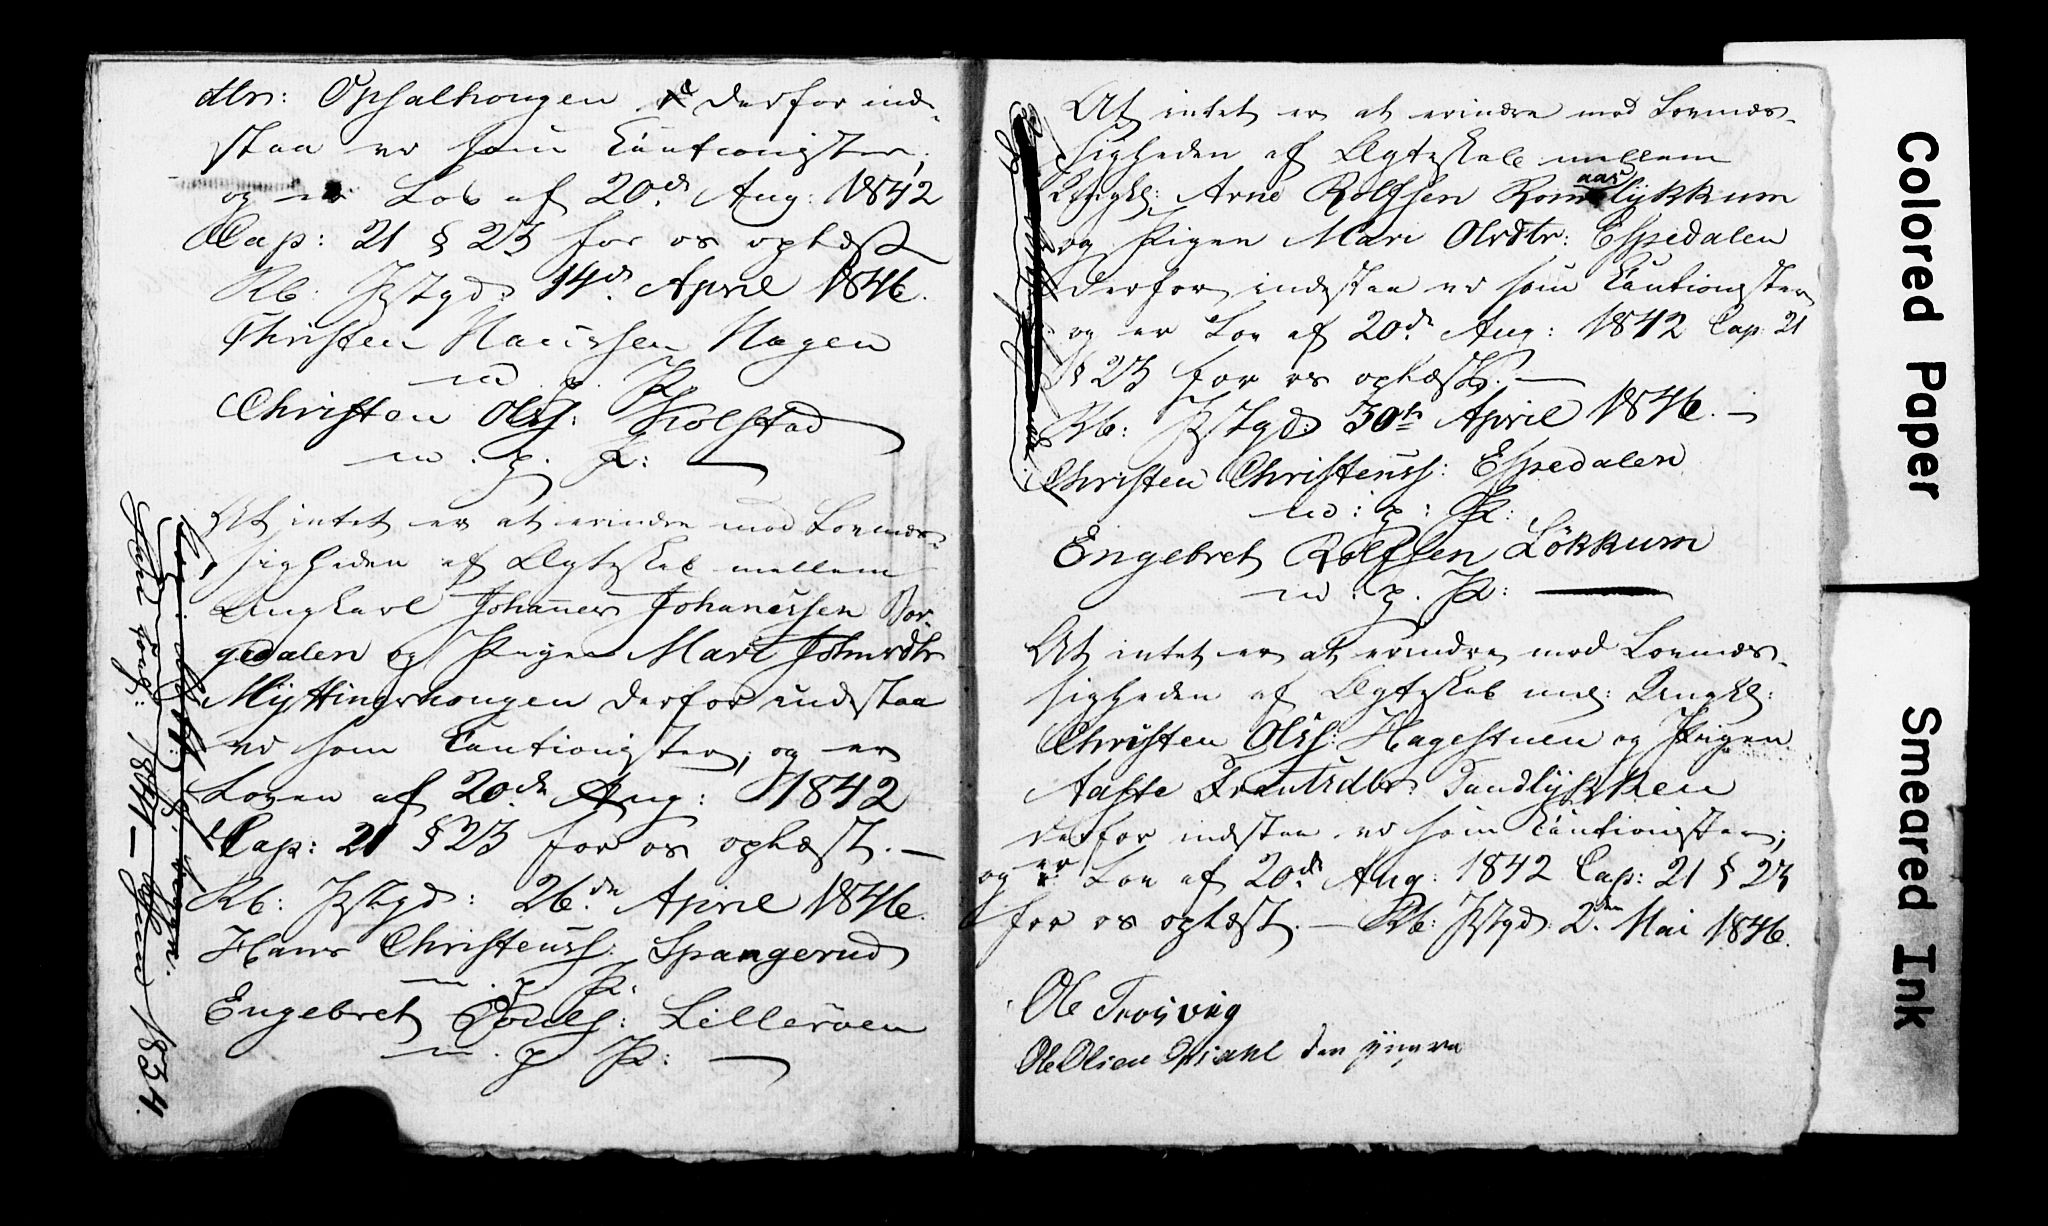 dtr: Opsalhougen derfor ind-
staa vi som Cautionister;
og er Lov af 20de Aug: 1842
Cap: 21 § 23 for os oplæst
Rb: Pstgd: 14de April 1846.
Christen Hanssen Hagen
m. p. P.
Christen Ols: Kolstad
m. p. P:
At intet er at erindre mod Lovmæs-
sigheden af Ægteskab mellem
Ungkarl Johannes Johanessen Bor-
gedalen og Pigen Mari Johnsdtr
Myttingshougen derfor indestaa
vi som Cautionister, og er
Loven af 20de Aug: 1842
Cap: 21 § 23 for os oplæst. —
Rb: Pstgd: 26de April 1846.
Hans Christenss: Spangerud
m. p. P.
Engebret Pouls: Lilleröen
m. p. P:
1841 — 1834.
At intet er at erindre mod Lovmæs-
sigheden af Ægteskab mellem
Ungkl: Arne Rolfsen Romslykkum
aas
og Pigen Mari Olsdtr: Espedalen
derfor indestaa vi som Cautionister
og er Lov af 20de Aug: 1842 Cap. 21
§ 23 for os oplæst. —
Rb: Pstgd: 30te April 1846. —
Christen Christenss: Espedalen
m: p: P:
Engebret Rolfsen Lökkum
m. p. P: —
At intet er at erindre mod Lovmæs-
sigheden af Ægteskab mel: Ungkl:
Christen Olss: Hagestuen og Pigen
Aaste Frantsdtr: Sandlykken
derfor indestaa vi som Cautionister;
og er Lov af 20de Aug: 1842 Cap: 21 § 23
for os oplæst. — Rb: Pstgd: 2den Mai 1846.
Ole
Ole Olsen den yngre
Colored Paper
Smeared Ink